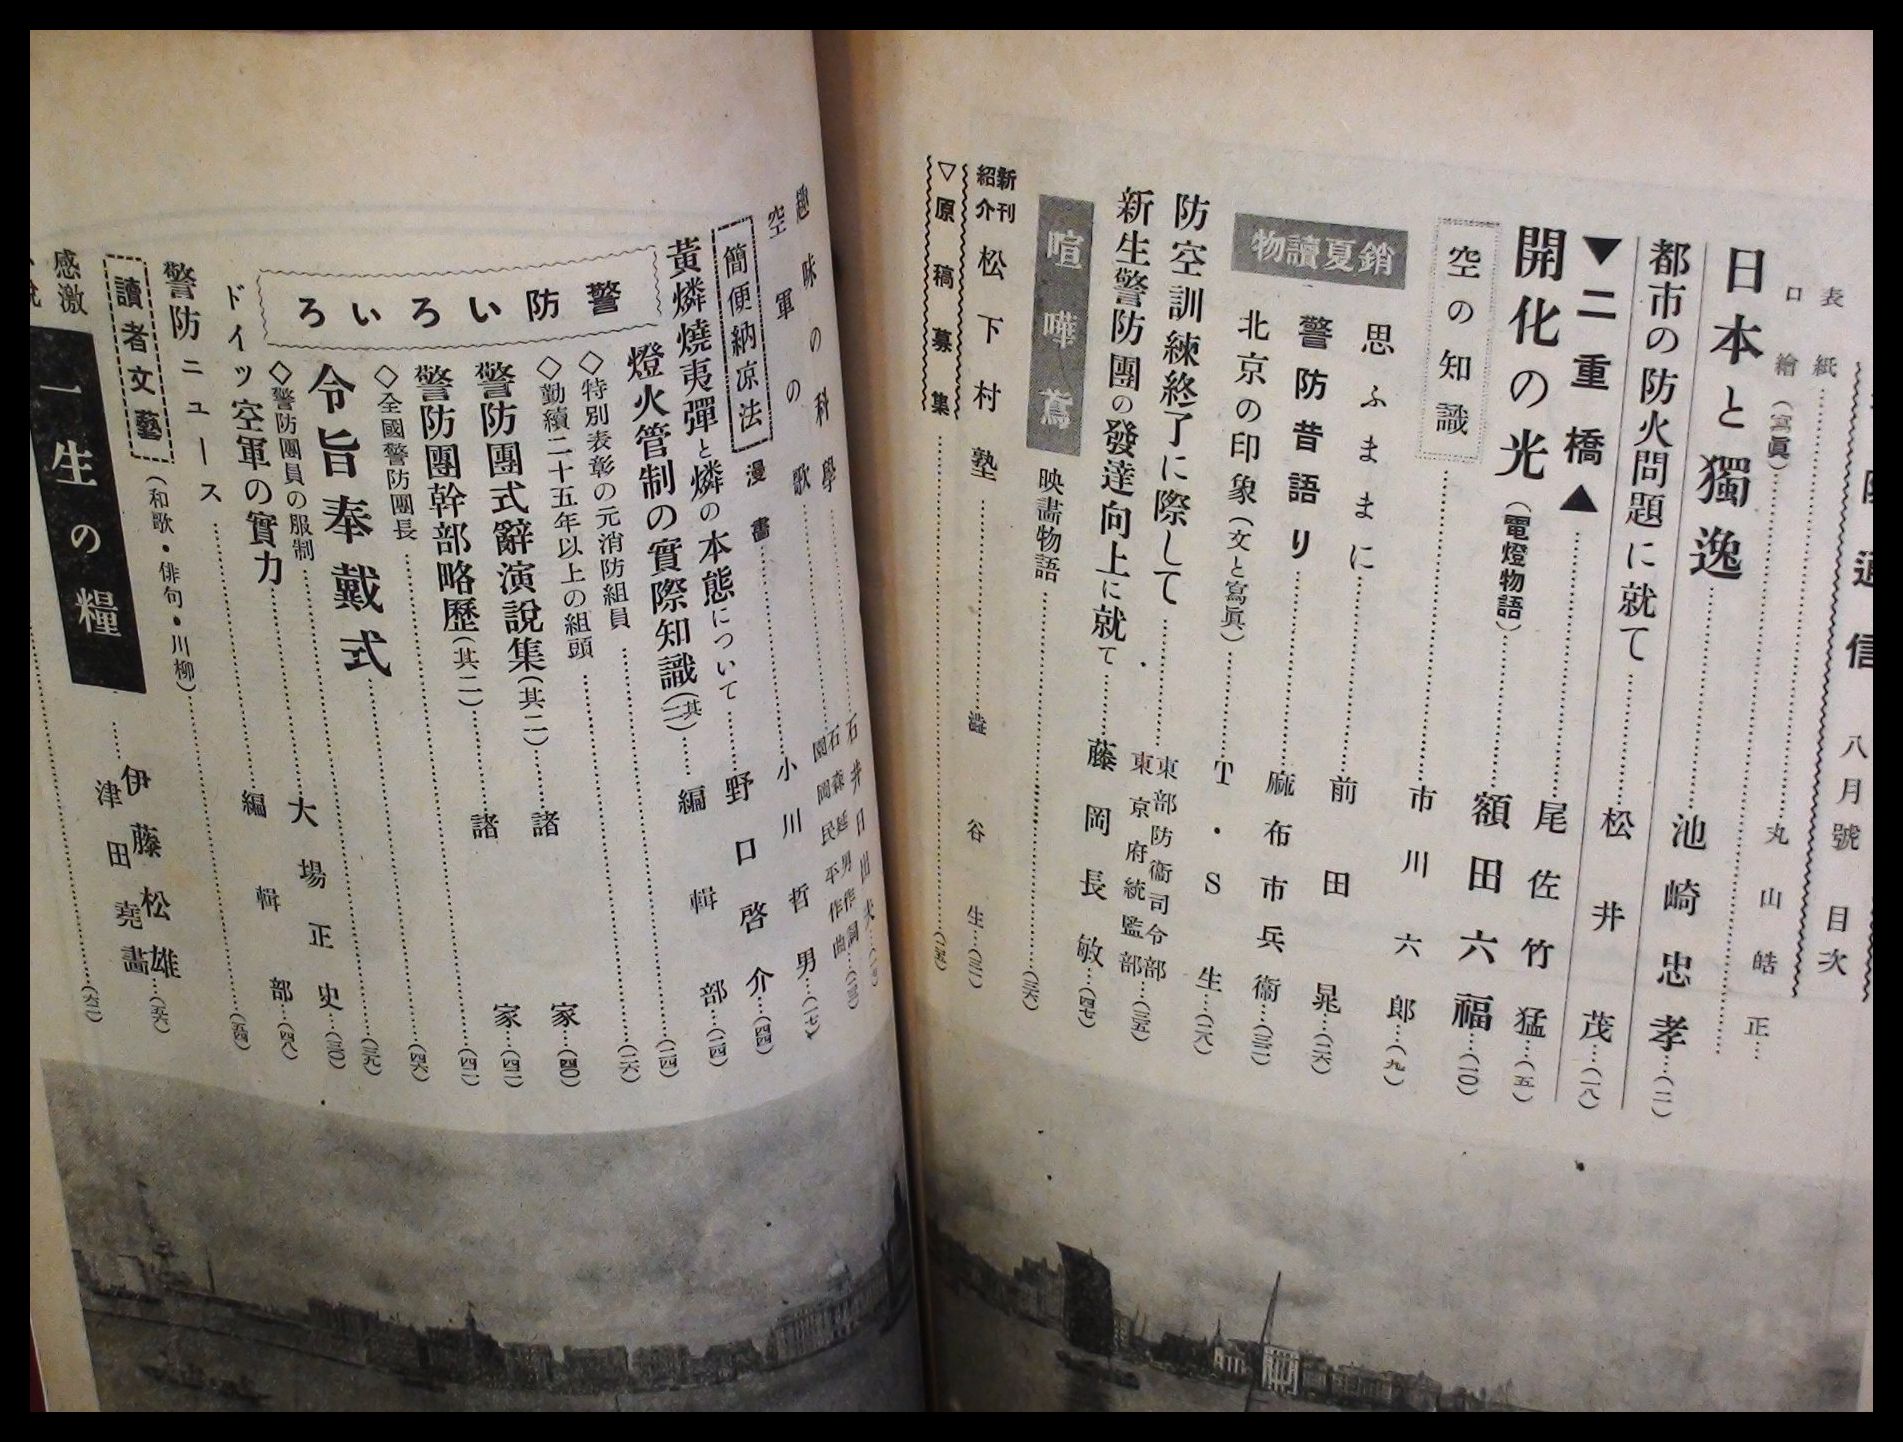 通信 八月號 目次
表紙
口繪(寫眞)……丸山皓正…
日本と獨逸……池崎忠孝…(二)
都市の防火問題に就て……松井茂…(一八)
▼二重橋▲……尾佐竹猛…(五)
開化の光(電燈物語)……額田六福…(一〇)
空の知識……市川六郎…(九)
銷夏讀物
思ふままに……前田晃…(二六)
警防昔語り……麻布市兵衞…(三二)
北京の印象(文と寫眞)……T・S生…(二八)
防空訓練終了に際して……東部防衞司令部 東京府統監部…(三五)
新生警防團の發達向上に就て……藤岡長敏…(四七)
喧嘩鳶 映畵物語……(三六)
新刊紹介 松下村塾……澁谷生…(三二)
▽原稿募集……
趣味の科學……石井日出夫
空軍の歌……石森延男作詞 園岡民平作曲…(二三)
簡便納凉法 漫畵……小川哲男…(一七)
黃燐燒夷彈と燐の本態について……野口啓介…(四四)
燈火管制の實際知識(其二)……編輯部…(二四)
警防いろいろ
◇特別表彰の元消防組員……(一四)
◇勤續二十五年以上の組頭……(二六)
警防團式辭演說集(其二)……諸家…(四〇)
警防團幹部略歷(其二)……諸家…(四二)
◇全國警防團長……(四一)
令旨奉戴式……(四六)
◇警防團員の服制……(三九)
ドイツ空軍の實力……大場正史…(三〇)
警防ニュース……編輯部…(四八)
讀者文藝(和歌・俳句・川柳)……(五四)
感激
一生の糧……伊藤松雄 津田堯畵…(五六)
(六二)